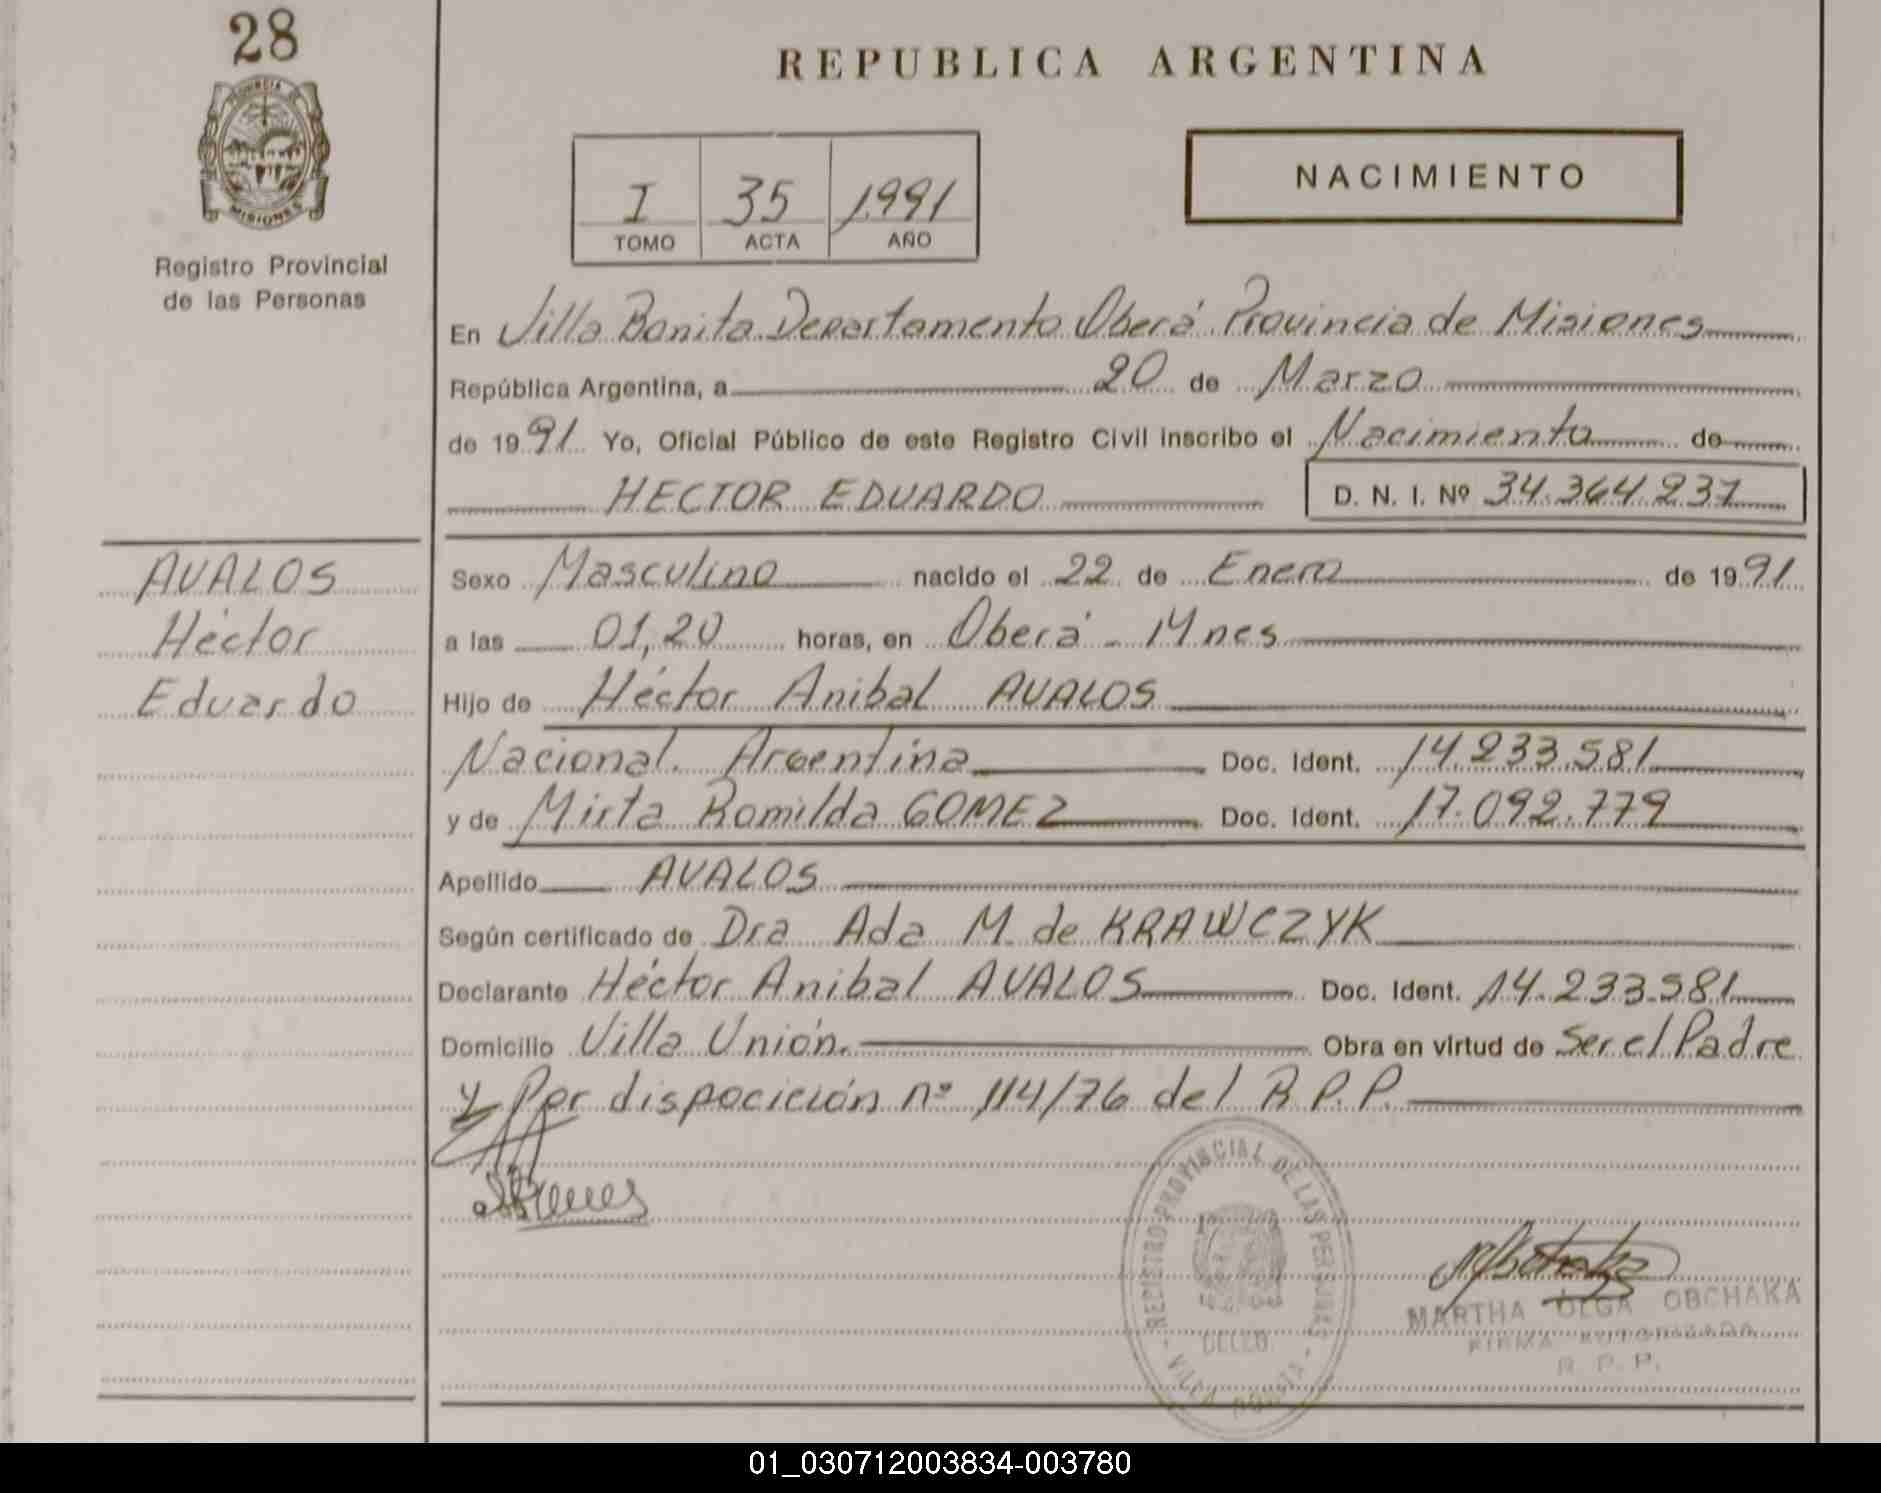 28
PROVINCIA DE
MISIONES
Registro Provincial
de las Personas
REPUBLICA ARGENTINA
I 35 1991
TOMO ACTA AÑO
NACIMIENTO
En Villa Bonita Departamento Oberá Provincia de Misiones
República Argentina, a 20 de Marzo
de 1991 Yo, Oficial Público de este Registro Civil inscribo el Nacimiento de
HECTOR EDUARDO D. N. I. Nº 34.364.237
AVALOS
Héctor
Eduardo
Sexo Masculino nacido el 22 de Enero de 1991
a las 01,20 horas, en Oberá - Mnes
Hijo de Héctor Anibal AVALOS
Nacional. Argentina Doc. Ident. 14.233.581
y de Mirta Romilda GOMEZ Doc. Ident. 17.092.779
Apellido AVALOS
Según certificado de Dra Ada M. de KRAWCZYK
Declarante Héctor Anibal AVALOS Doc. Ident. 14.233.581
Domicilio Villa Unión. Obra en virtud de Ser el Padre
y Por disposición nº 114/76 del R.P.P.
REGISTRO PROVINCIAL DE LAS PERSONAS
DELEG.
VILLA BONITA
MARTHA OLGA OBCHAKA
FIRMA AUTORIZADA
R. P. P.
01_030712003834-003780